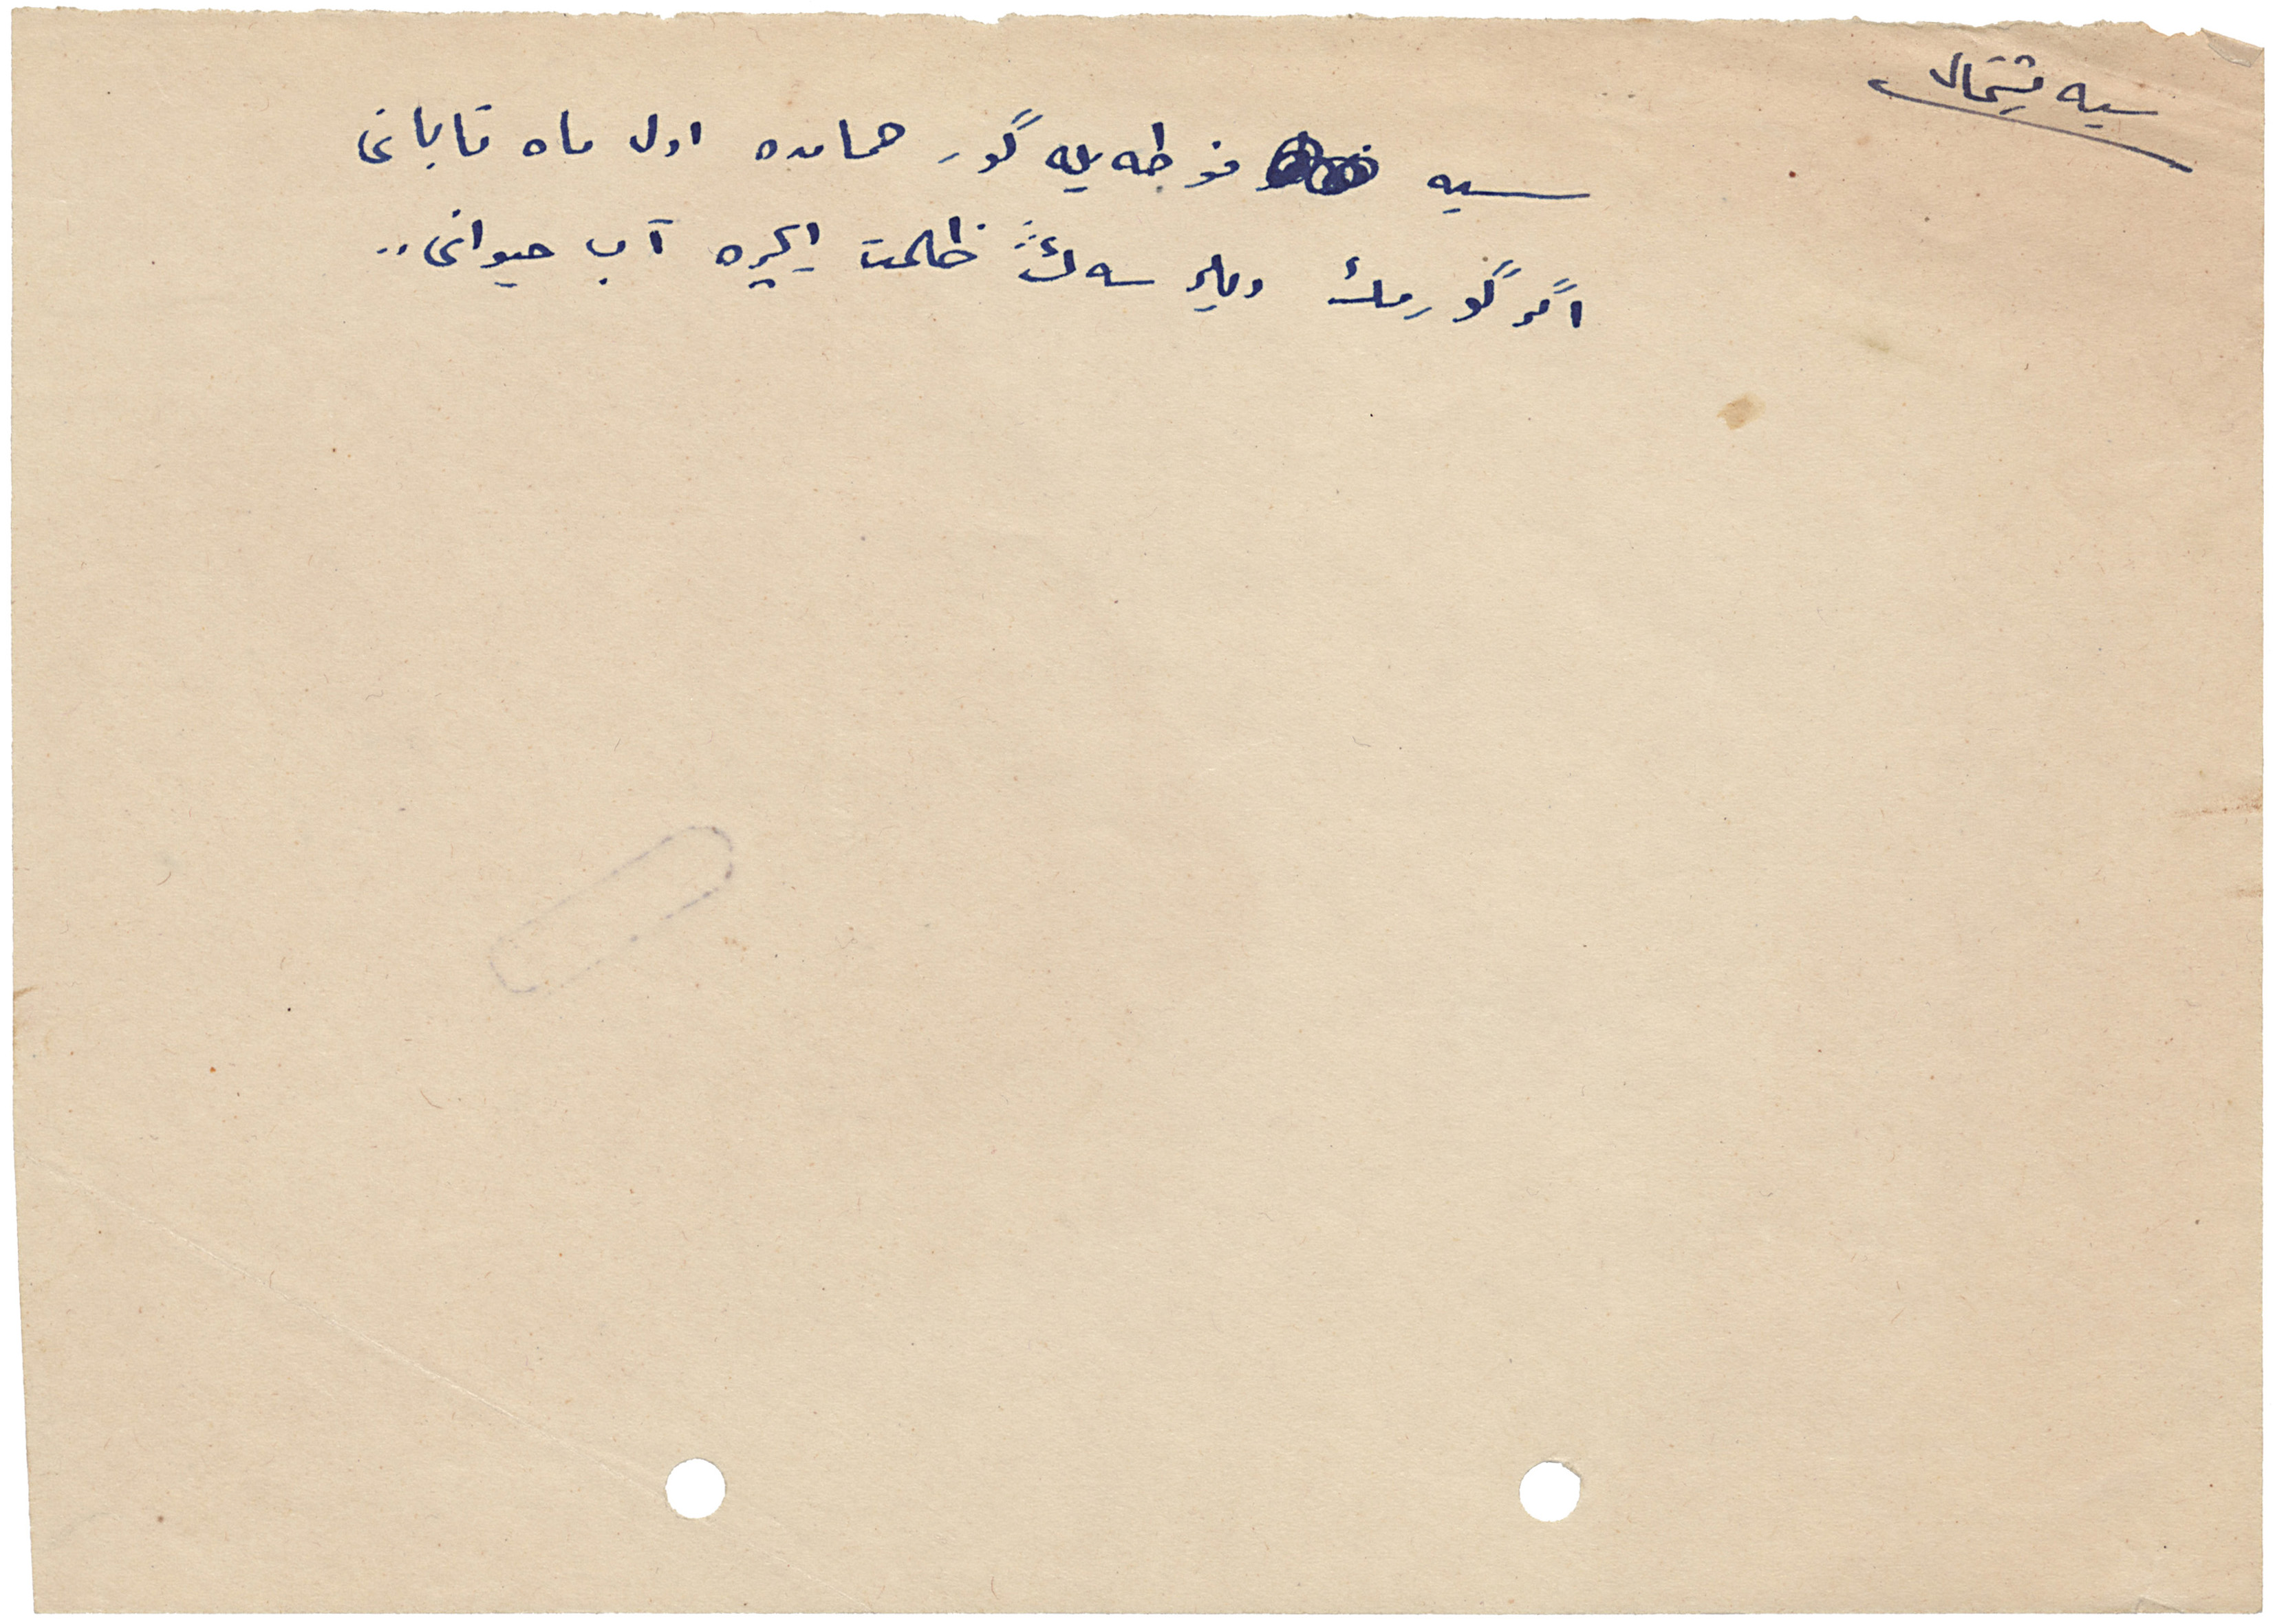 سیه پشتمال
سیه فوطه یله گور حمامده اول ماه تابانی
اگر گورمك دیلر سه ڭ ظلمت ایچره آب حیوانی..